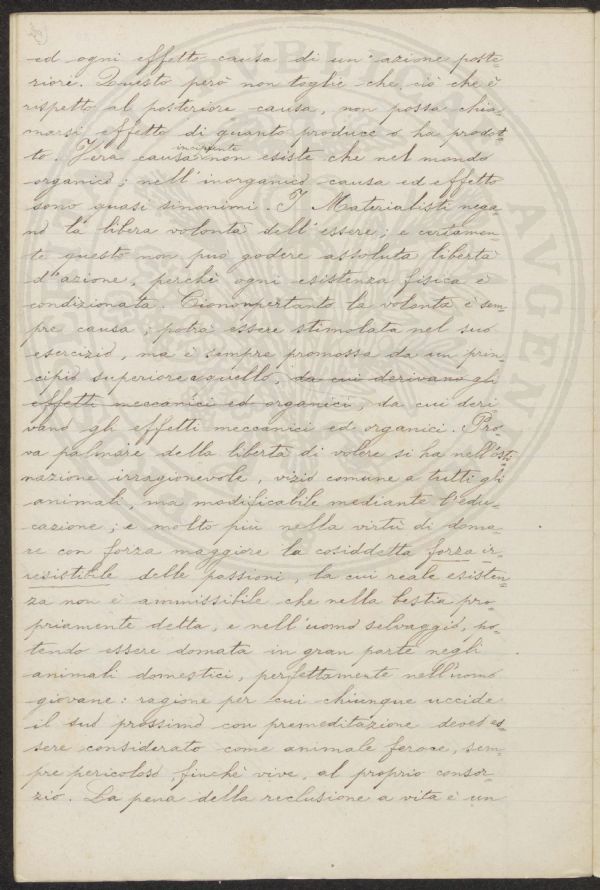 ed ogni effetto causa di un'azione poste=
riore. Questo però non toglie che ciò che è
rispetto al posteriore causa, non possa chia=
marsi effetto di quanto produce o ha prodot=
to. Vera causa incipiente non esiste che nel mondo
organico; nell'inorganico causa ed effetto
sono quasi sinonimi. I Materialisti nega=
no la libera volontà dell'essere; e certamen=
te questo non può godere assoluta libertà
d'azione, perchè ogni esistenza fisica è
condizionata. Ciononpertanto la volontà è sem=
pre causa; potrà essere stimolata nel suo
esercizio, ma è sempre promossa da un prin=
cipio superiore a quello, da cui derivano gli
effetti meccanici ed organici, da cui deri
vano gli effetti meccanici ed organici. Pro=
va palmare della libertà di volere si ha nell'osti=
nazione irragionevole, vizio comune a tutti gli
animali, ma modificabile mediante l'edu=
cazione; e molto più nella virtù di doma=
re con forza maggiore la cosiddetta forza ir=
resistibile delle passioni, la cui reale esisten=
za non è ammissibile che nella bestia pro=
priamente detta, e nell'uomo selvaggio, po=
tendo essere domata in gran parte negli
animali domestici, perfettamente nell'uomo
giovane: ragione per cui chiunque uccide
il suo prossimo con premeditazione deve es=
sere considerato come animale feroce, sem=
pre pericoloso, finchè vive, al proprio consor=
zio. La pena della reclusione a vita è un